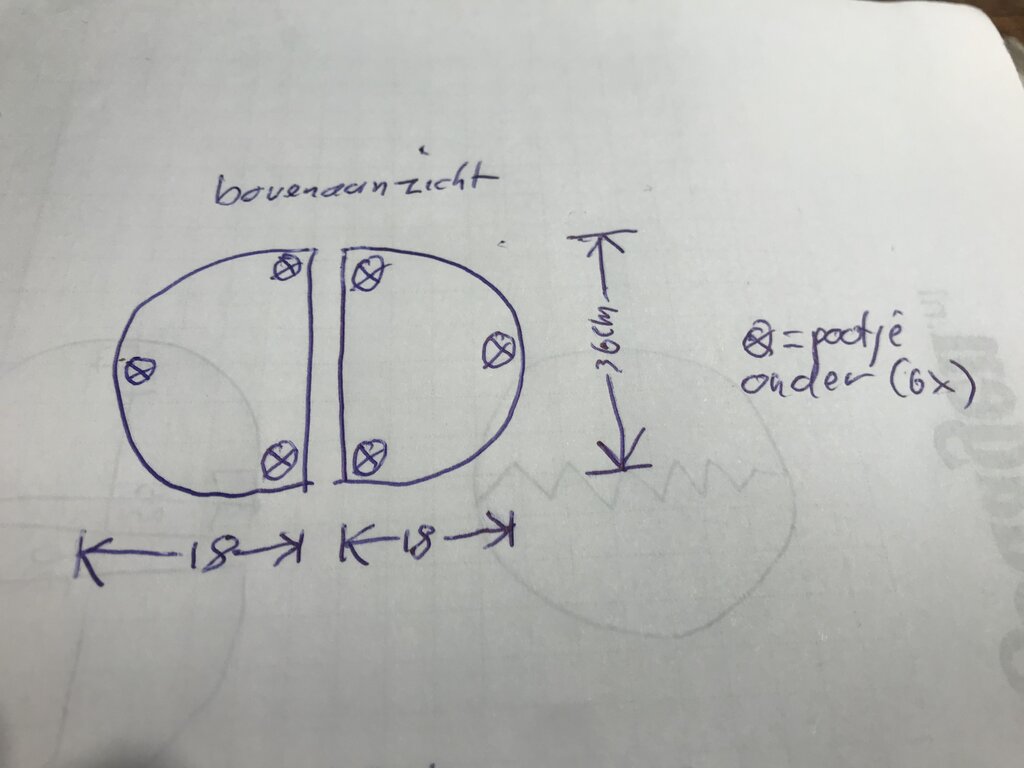 bovenaanzicht
36cm
= pootje
onder (6x)
18
18